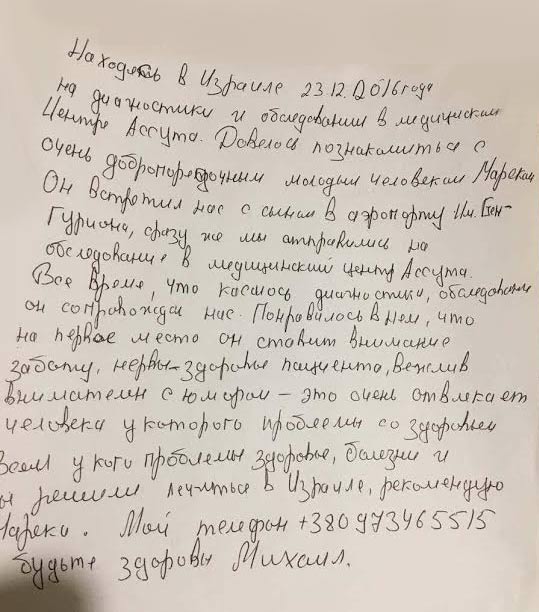 Находясь в Израиле 23.12.2016 года
на диагностики и обследовании в медицинском
Центре Ассута. Довелось познакомиться с
очень добропорядочным молодым человеком Мареком
Он встретил нас с сыном в аэропорту Им. Бен-
Гуриона, сразу же мы отправились на
обследование в медицинский центр Ассута.
Все время, что касалось диагностики, обследование
он сопровождал нас. Понравилось в нем, что
на первое место он ставит внимание
заботу, нервы-здоровье пациента, вежлив
внимателен с юмором - это очень отвлекает
человека у которого проблемы со здоровьем
Всем у кого проблемы здоровье, болезни и
ы решили лечиться в Израиле, рекомендую
Марека. Мой телефон +380973465515
будьте здоровы Михаил.